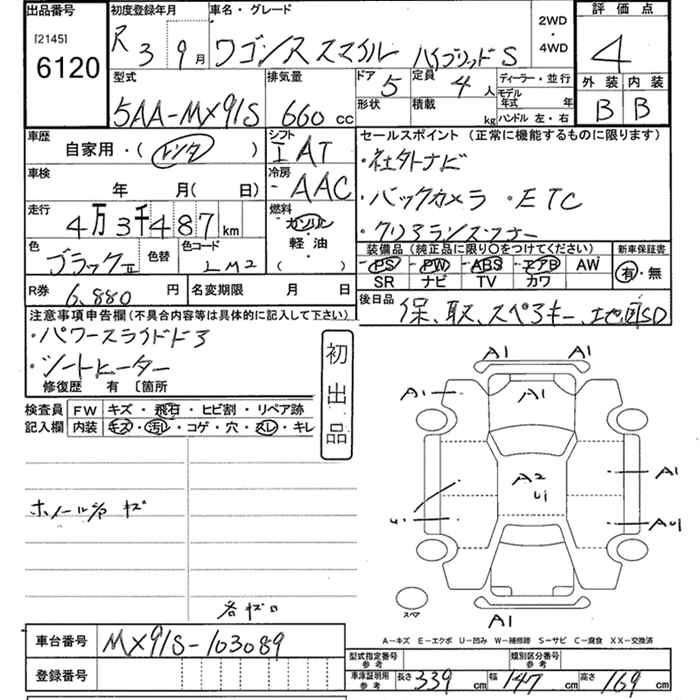 出品番号
[2145]
6120
初度登録年月
R 3 9月
車名・グレード
ワゴンR スマイル ハイブリッドS
2WD
・
4WD
評価点
4
外装 内装
B B
型式
5AA-MX91S
排気量
660 cc
ドア 5
定員 4人
形状
積載 kg
ディーラー・並行
モデル年式 年
ハンドル 左・右
車歴
自家用・(レンタ)
シフト
IAT
セールスポイント (正常に機能するものに限ります)
・社外ナビ
・バックカメラ ・ETC
・クリアランスソナー
車検
年 月( 日)
冷房
AAC
走行
4万3千487km
燃料
ガソリン
軽・油
( )
色
ブラックII
色替
色コード
装備品(純正品に限り○をつけてください)
PS PW ABS エアB AW
SR ナビ TV カワ
新車保証書
有・無
R券 6,880 円
名変期限 月 日
後日品
保、取、スペアキー、地図SD
注意事項申告欄(不具合内容等は具体的に記入して下さい)
・パワースライドドア
・シートヒーター
修復歴 有 〔箇所
初出品
検査員
記入欄
FW キズ・飛石・ヒビ割・リペア跡
内装 キズ・汚レ・コゲ・穴・スレ・キレ
A1 A1
A1 A1 A1
A2
U1
A1
AU1
A1
スペア
A-キズ E-エクボ U-凹み W-補修跡 S-サビ C-腐食 XX-交換済
車台番号 MX91S-103089
登録番号
型式指定番号
参考
類別区分番号
参考
車庫証明用
参考
長さ 339 cm 幅 147 cm 高さ 169 cm